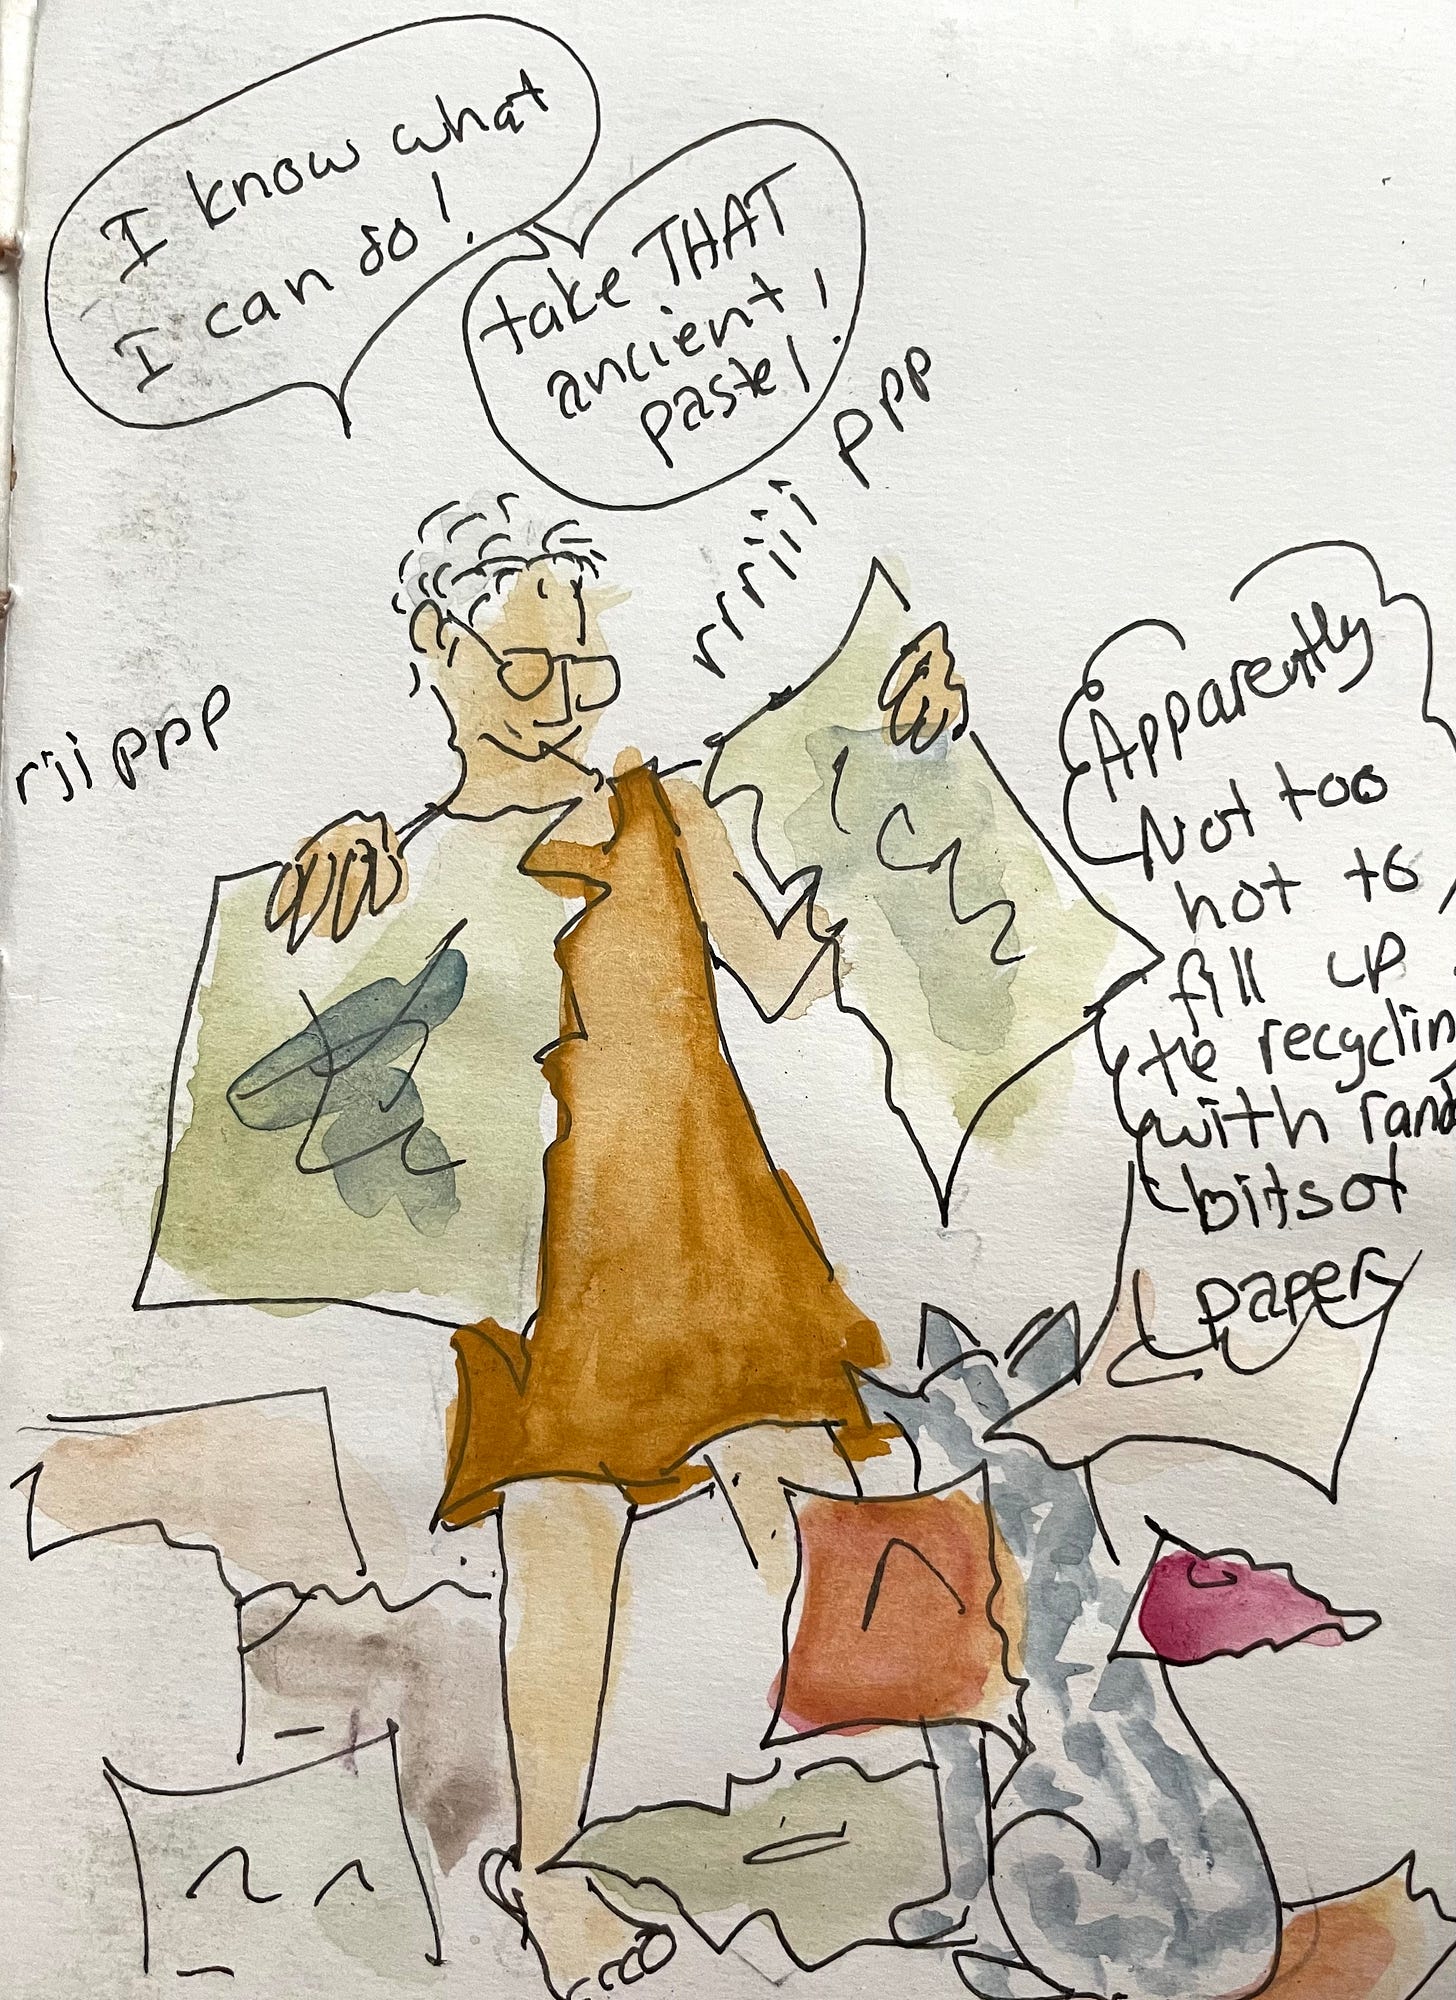 I know what
I can do!
take THAT
ancient
pastel!
rrriii ppp
riiippp
Apparently
Not too
hot to
fill up
the recycling
with rand
bits of
paper